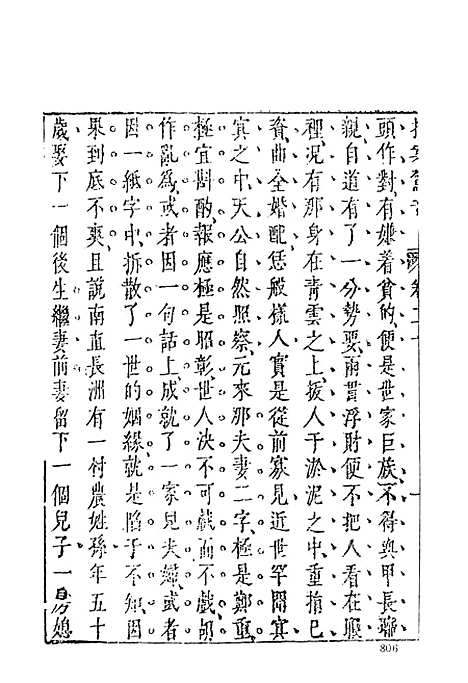 拍案驚奇 卷二十 一
頭作對有嫌着貧的便是世家巨族不得與甲長聯
親自道有了一分勢要兩貫浮財便不把人看在眼
裡況有那身在青雲之上拔人于淤泥之中重捐己
資曲全婚配恁般樣人實是從前寡見近世罕聞冥
冥之中天公自然照察元來那夫妻二字極是鄭重
極宜斟酌報應極是昭彰世人決不可戲而不戲胡
作亂爲或者因一句話上成就了一家兒夫婦或者
因一紙字中拆散了一世的姻緣就是陷于不知因
果到底不爽且說南直長洲有一村農姓孫年五十
歲娶下一個後生繼妻前妻留下一個兒子一房媳
806